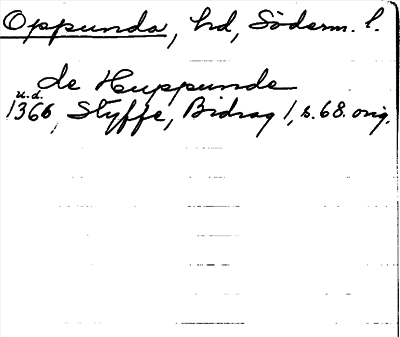 Oppunda, hd, Söderm. l.
de Huppunde
u.d.
1366, Styffe, Bidrag 1, s. 68. orig.